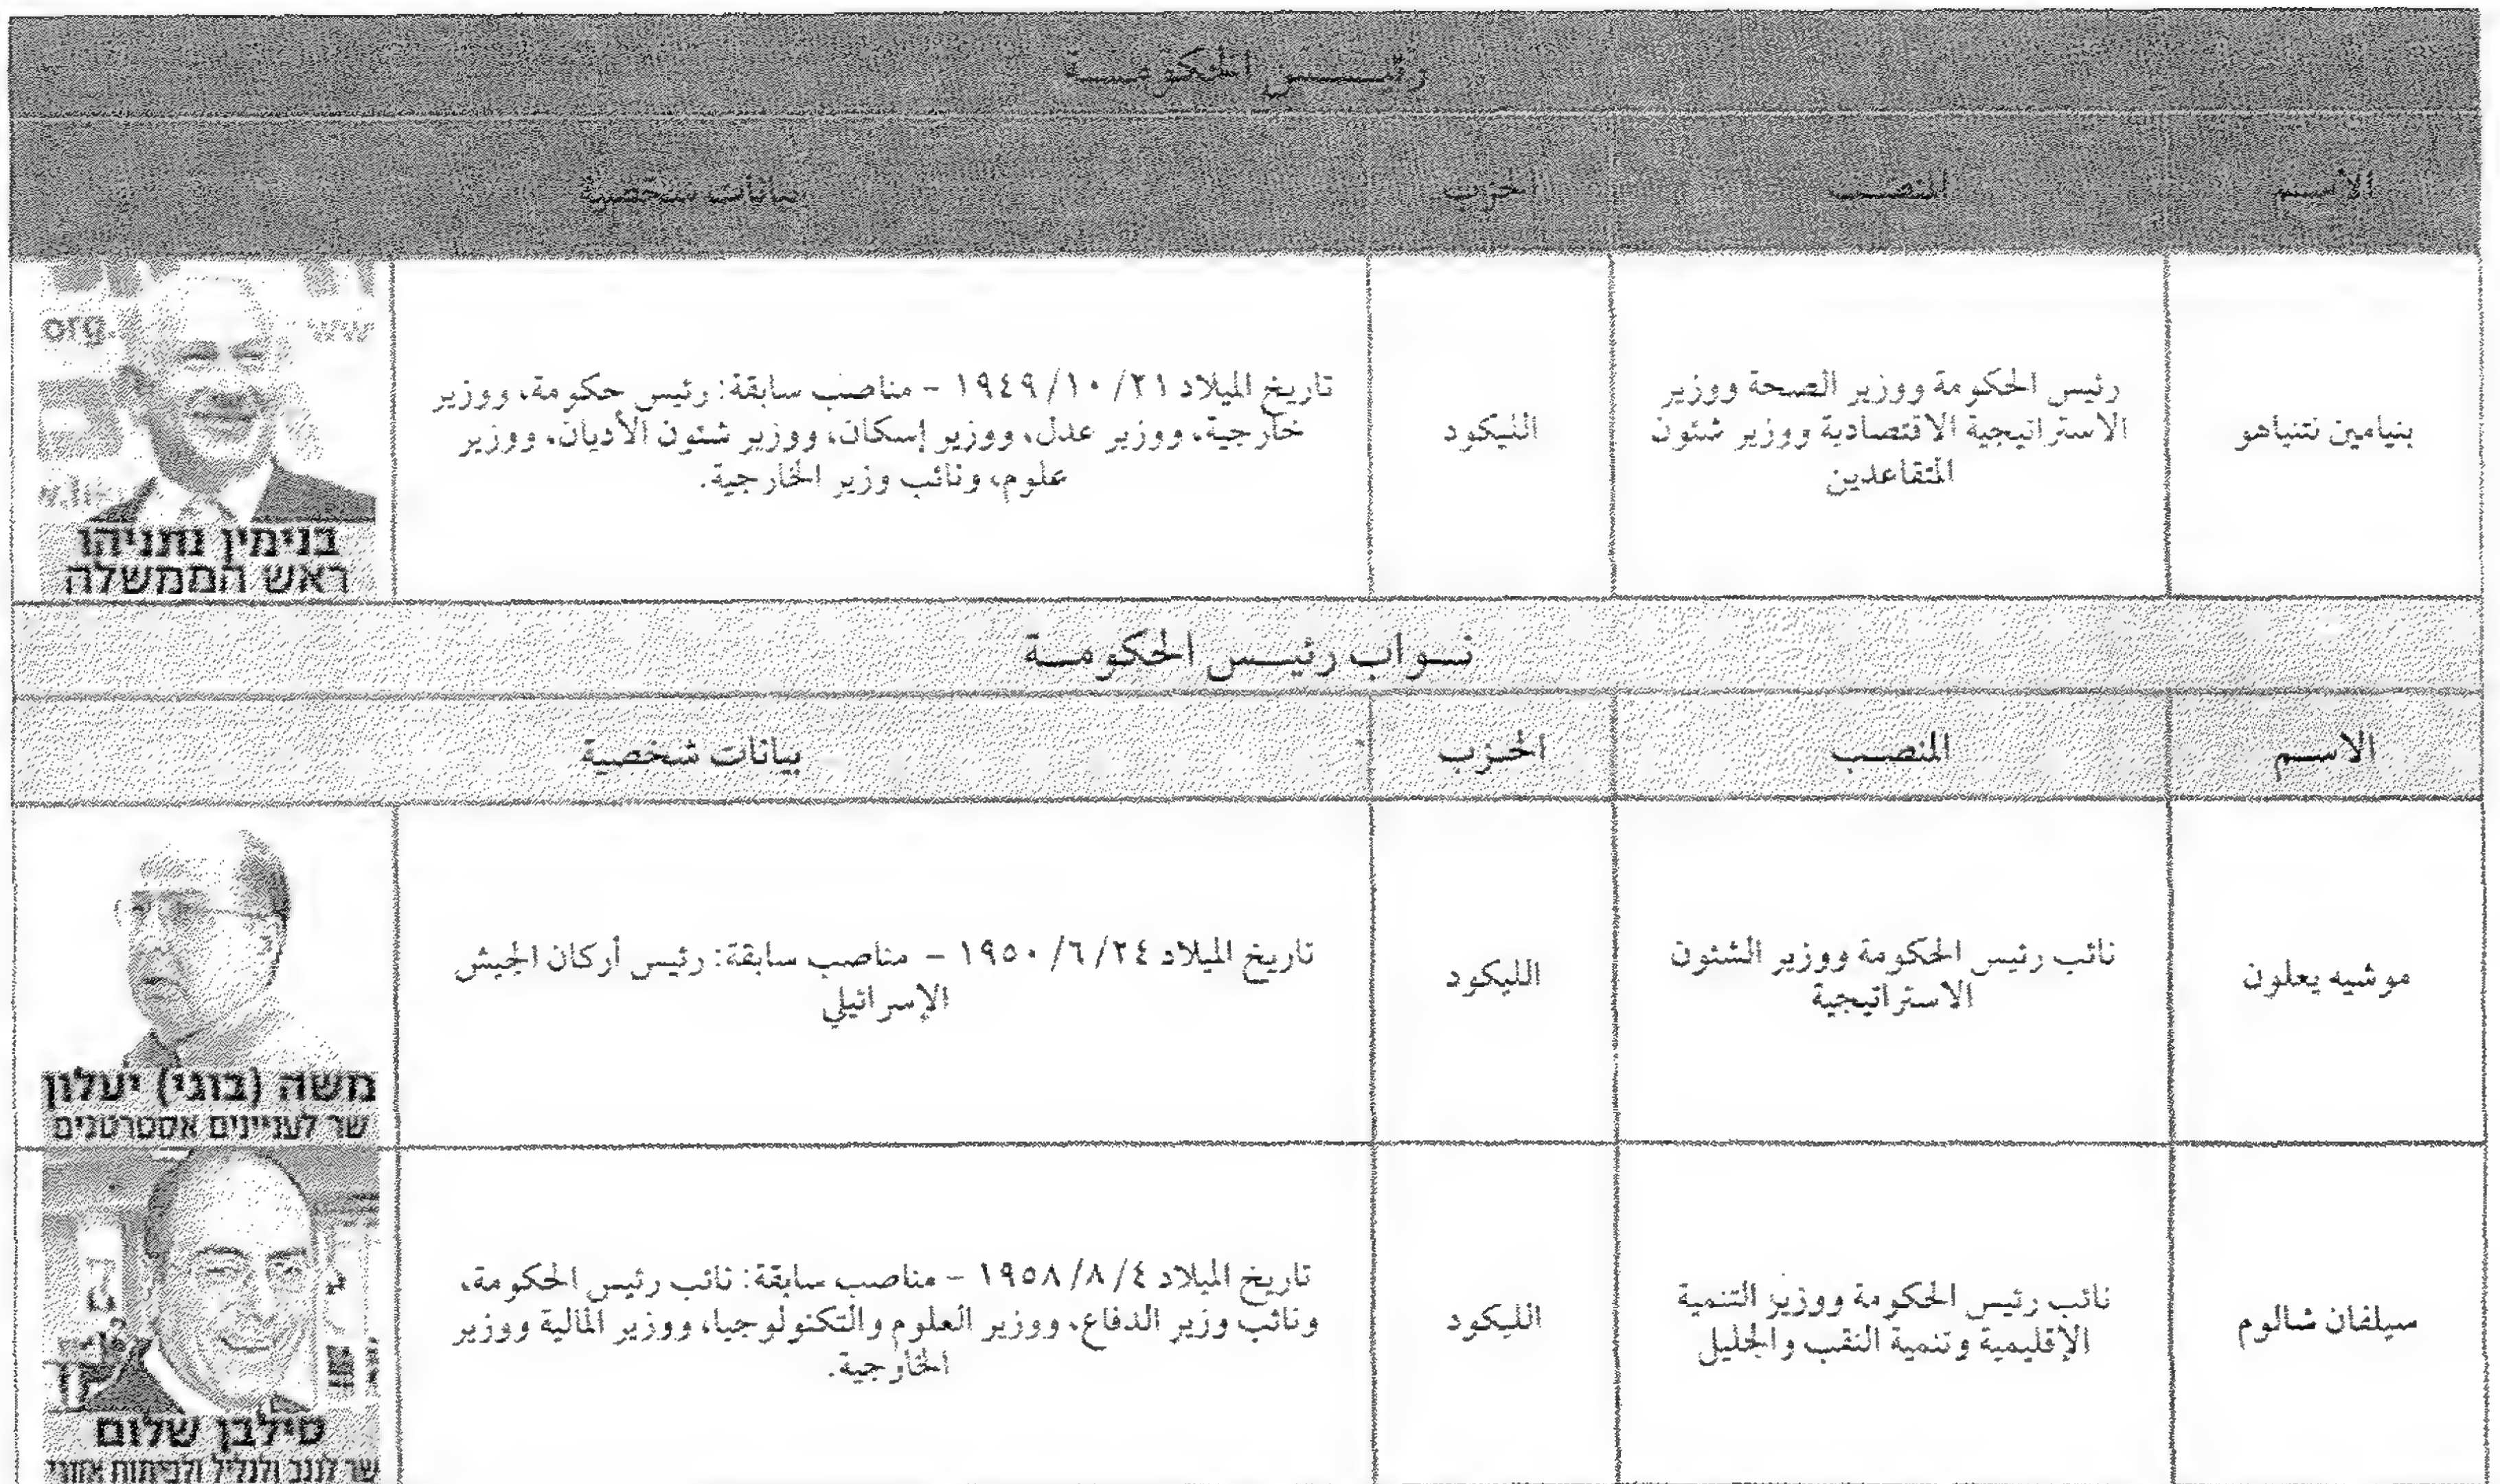 رئيس الحكومة
الاسم المنصب الحزب بيانات شخصية
بنيامين نتنياهو
رئيس الحكومة ووزير الصحة ووزير
الاستراتيجية الاقتصادية ووزير شئون
المتقاعدين
الليكود
تاريخ الميلاد ٢١/ ١٠/ ١٩٤٩ – مناصب سابقة: رئيس حكومة، ووزير
خارجية، ووزير عدل، ووزير إسكان، ووزير شئون الأديان، ووزير
علوم، ونائب وزير الخارجية.
org.
ww
בנימין נתניהו
ראש הממשלה
نواب رئيس الحكومة
الاسم المنصب الحزب بيانات شخصية
موشيه يعلون
نائب رئيس الحكومة ووزير الشئون
الاستراتيجية
الليكود
تاريخ الميلاد ٢٤/ ٦/ ١٩٥٠ – مناصب سابقة: رئيس أركان الجيش
الإسرائيلي
משה (בוגי) יעלון
שר לעניינים אסטרטגים
سيلفان شالوم
نائب رئيس الحكومة ووزير التنمية
الإقليمية وتنمية النقب والجليل
الليكود
تاريخ الميلاد ٤/ ٨/ ١٩٥٨ – مناصب سابقة: نائب رئيس الحكومة،
ونائب وزير الدفاع، ووزير العلوم والتكنولوجيا، ووزير المالية ووزير
الخارجية.
סילבן שלום
שר לנגב ולגליל ולפיתוח אזורי